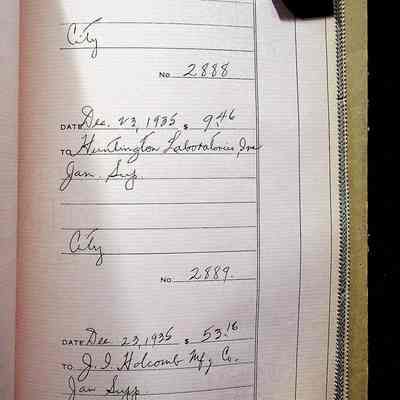 City
No 2888
DATE Dec. 23, 1935 $ 9.46
TO Huntington Laboratories, Inc
Jan. Sup.
City
No 2889.
DATE Dec 23, 1935 $ 53.16
TO J. I. Holcomb Mf'g Co.
Jan Supp.